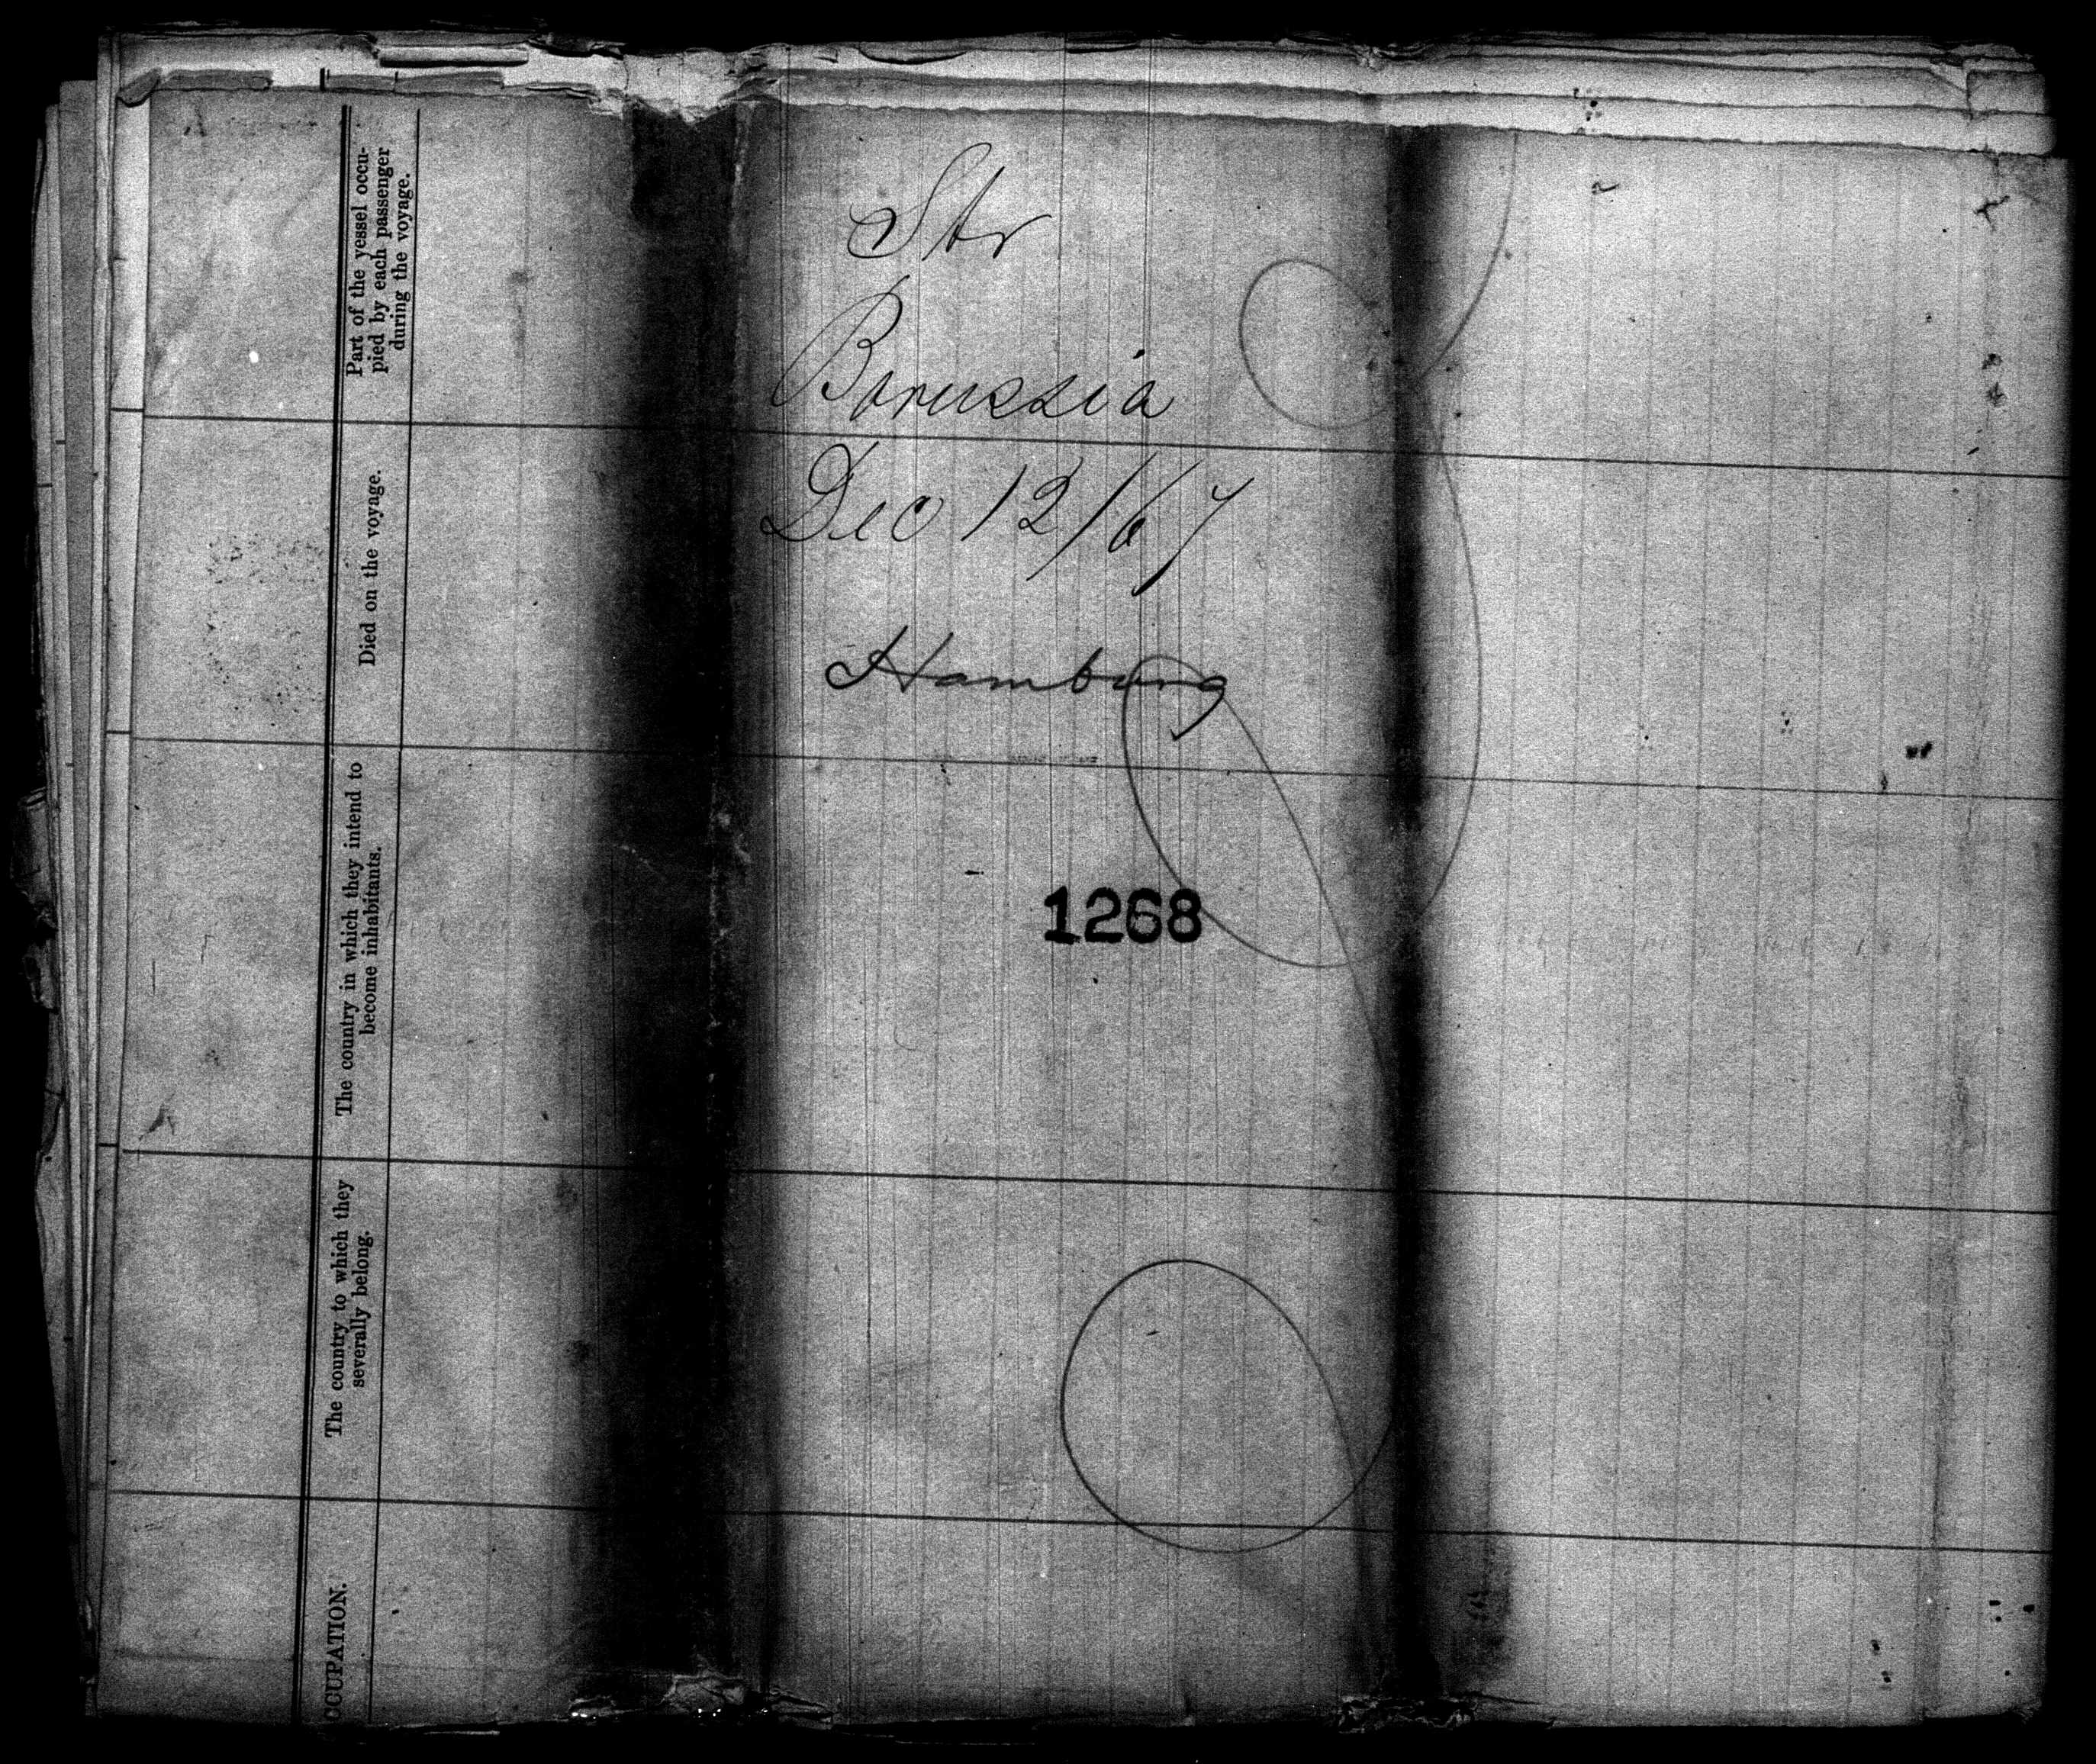 Str
Borussia
Dec 12/67
Hamburg
1268
Part of the vessel occu-
pied by each passenger
during the voyage.
Died on the voyage.
The country in which they intend to
become inhabitants.
The country to which they
severally belong.
CCUPATION.